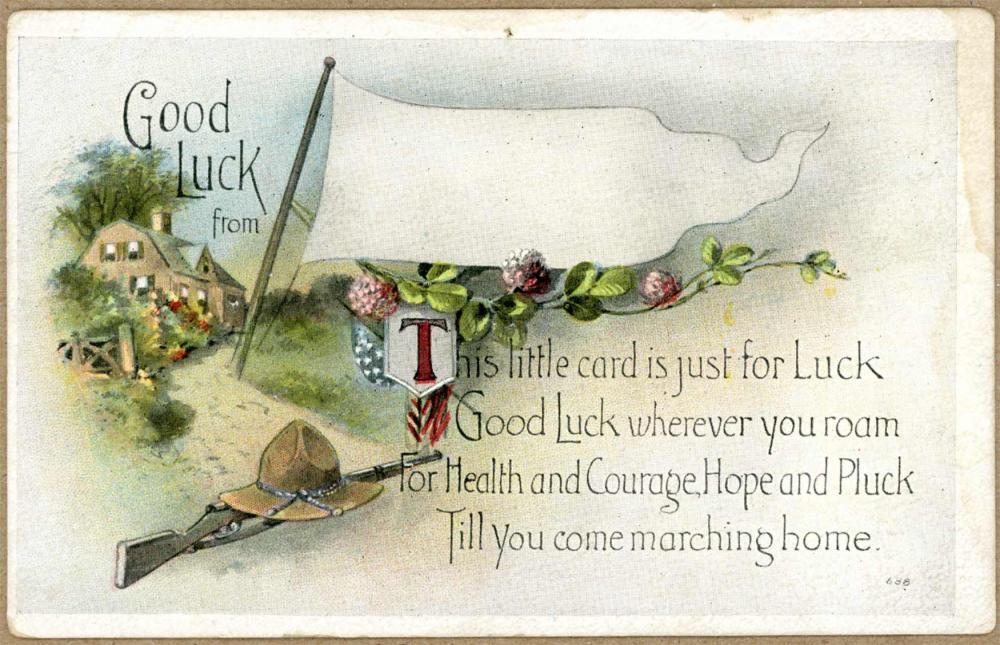 Good
Luck
from
This little card is just for Luck
Good Luck wherever you roam
For Health and Courage, Hope and Pluck
Till you come marching home.
688